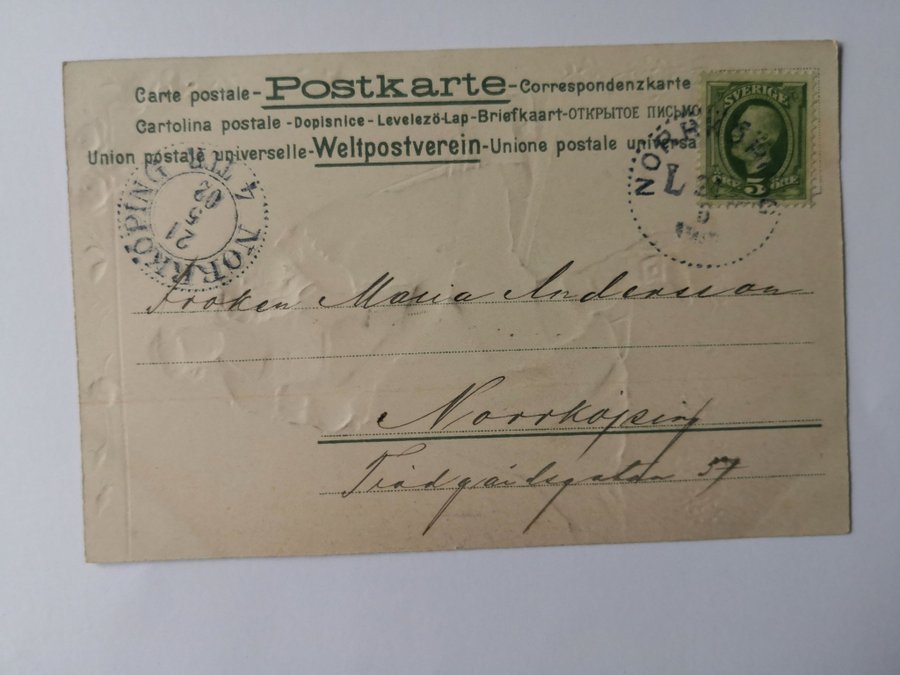 Carte postale - Postkarte - Correspondenzkarte
Cartolina postale - Dopisnice - Levelező-Lap - Briefkaart - ОТКРЫТОЕ ПИСЬМО
Union postale universelle - Weltpostverein - Unione postale universa
SVERIGE
5 ÖRE
NORRKÖPING
L
NORRKÖPING
4 TUR
21
5
02
Fröken Maria Andersson
Norrköping
Trädgårdsgatan 37